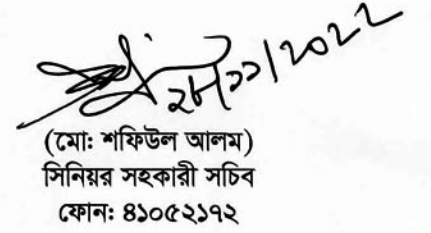 ২৮/১১/2022
(মো: শফিউল আলম)
সিনিয়র সহকারী সচিব
ফোন: ৪১০৫২১৭২